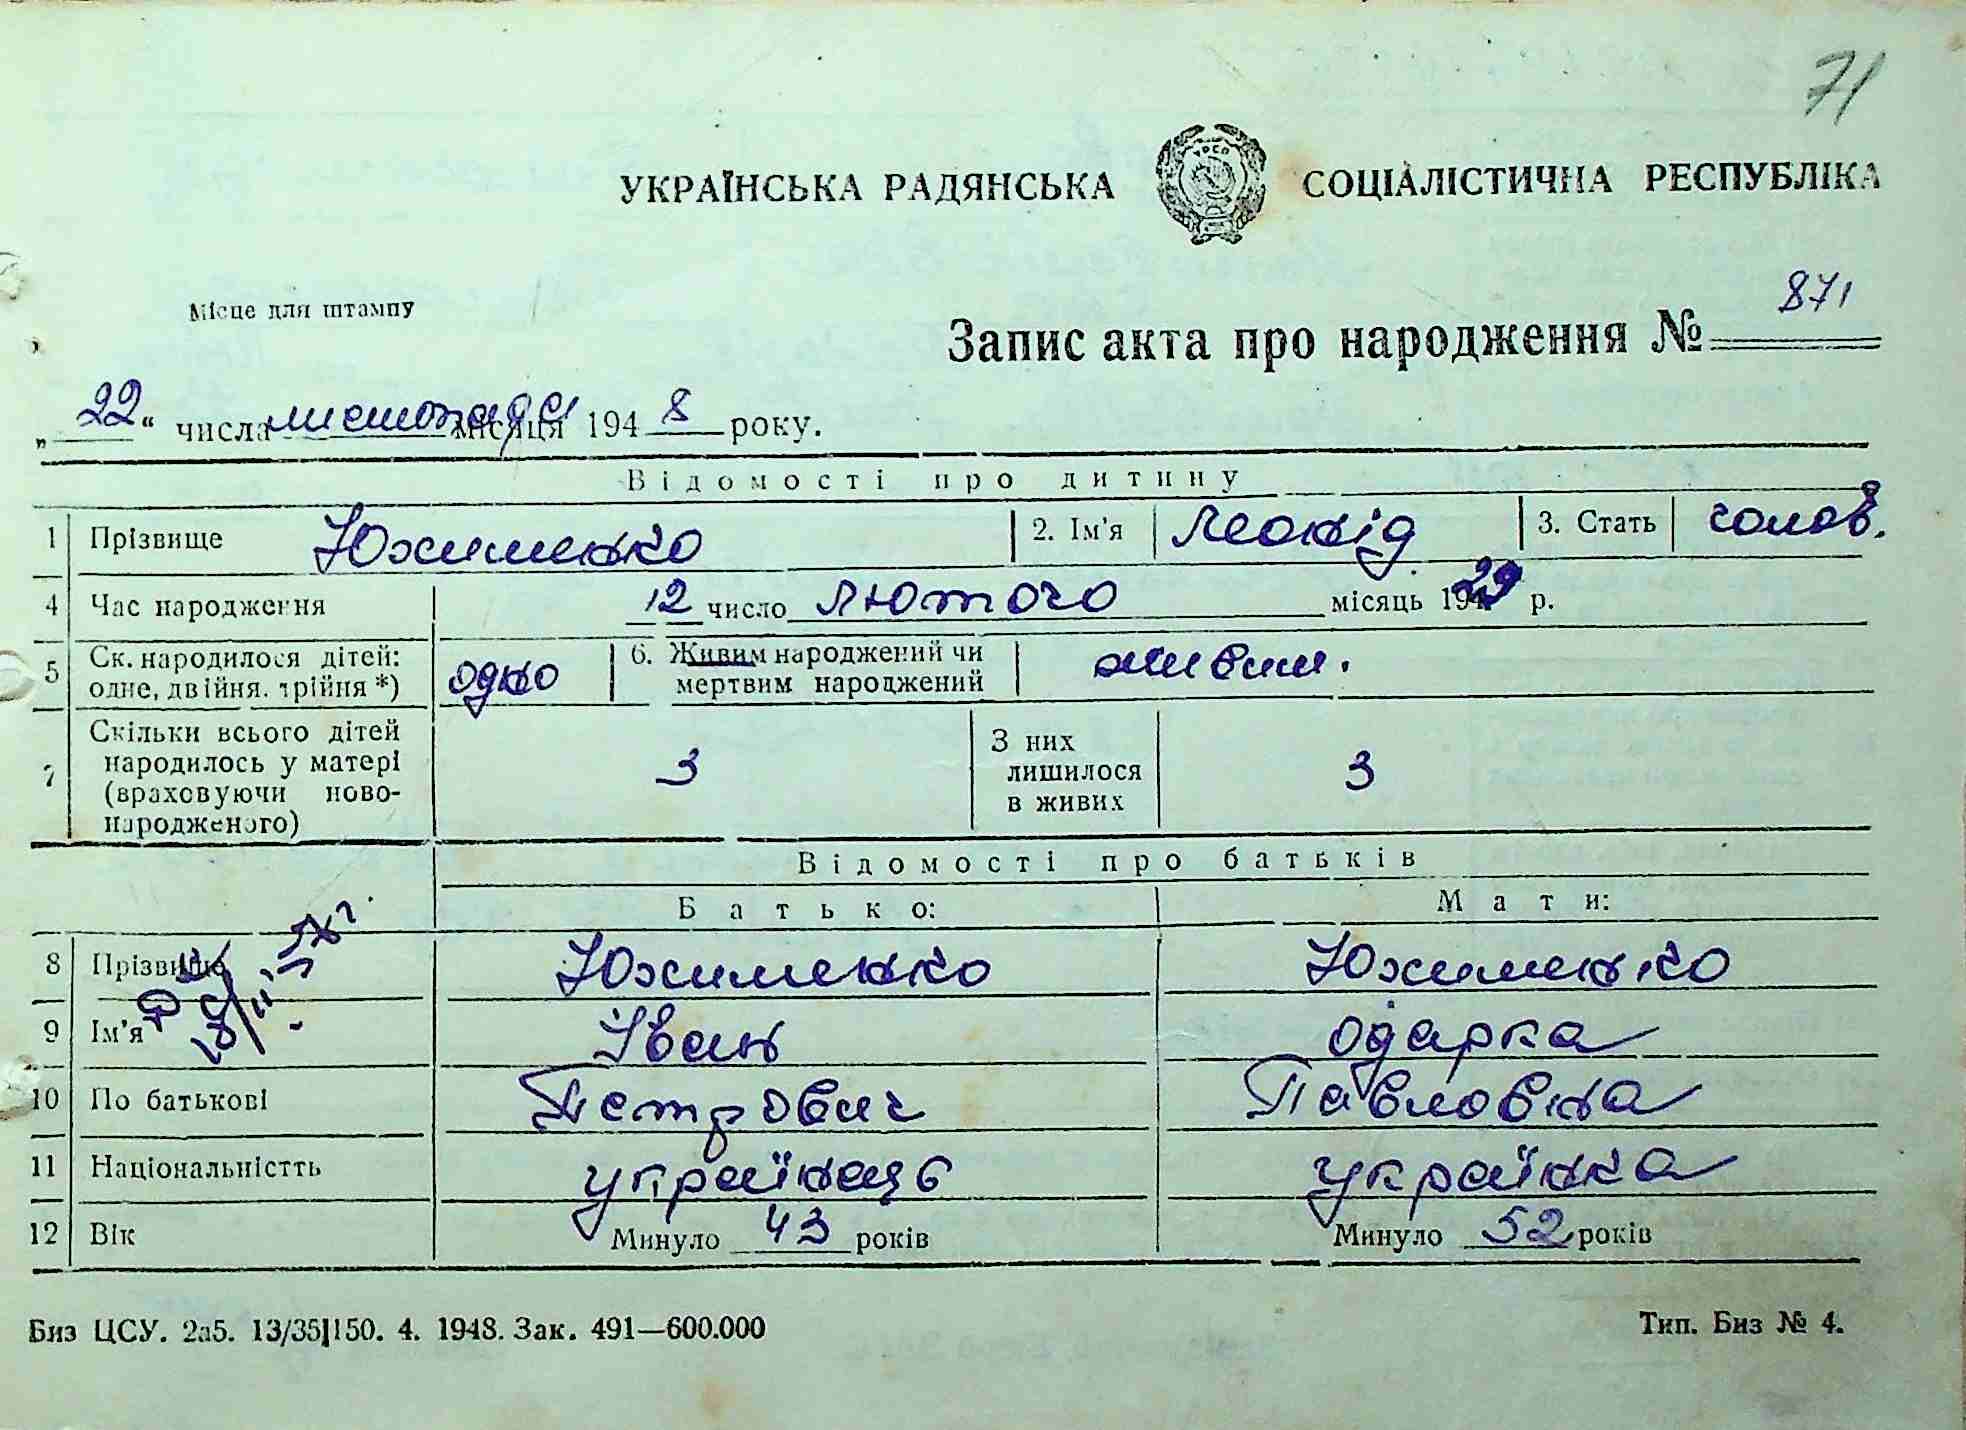 71
УКРАЇНСЬКА РАДЯНСЬКА СОЦІАЛІСТИЧНА РЕСПУБЛІКА
УРСР
Місце для штампу
Запис акта про народження № 871
„22“ числа листопада місяця 1948 року.
Відомості про дитину
1 Прізвище Южименко 2. Ім'я Леонід 3. Стать чолов.
4 Час народження 12 число лютого місяць 1929 р.
5 Ск. народилося дітей: одно 6. Живим народжений чи живим.
одне, двійня, трійня *) мертвим народжений
7 Скільки всього дітей народилось у матері (враховуючи ново-народженого) 3 З них лишилося в живих 3
Відомості про батьків
Батько: Мати:
8 Прізвище Южименко Южименко
9 Ім'я Іван Одарка
10 По батькові Петрович Павловна
11 Національністть українець українка
12 Вік Минуло 43 років Минуло 52 років
Биз ЦСУ. 2а5. 13/35|150. 4. 1948. Зак. 491—600.000 Тип. Биз № 4.